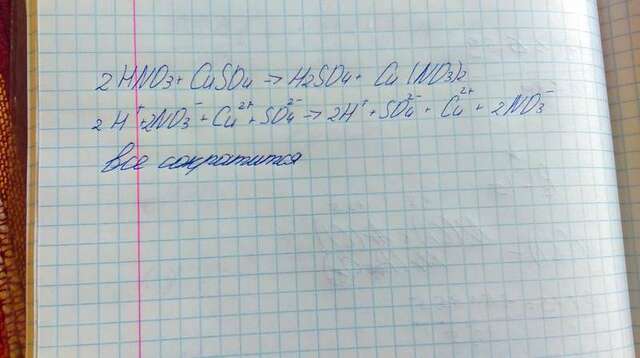 2HNO₃ + CuSO₄ → H₂SO₄ + Cu(NO₃)₂
2H⁺ + 2NO₃⁻ + Cu²⁺ + SO₄²⁻ → 2H⁺ + SO₄²⁻ + Cu²⁺ + 2NO₃⁻
все сократится